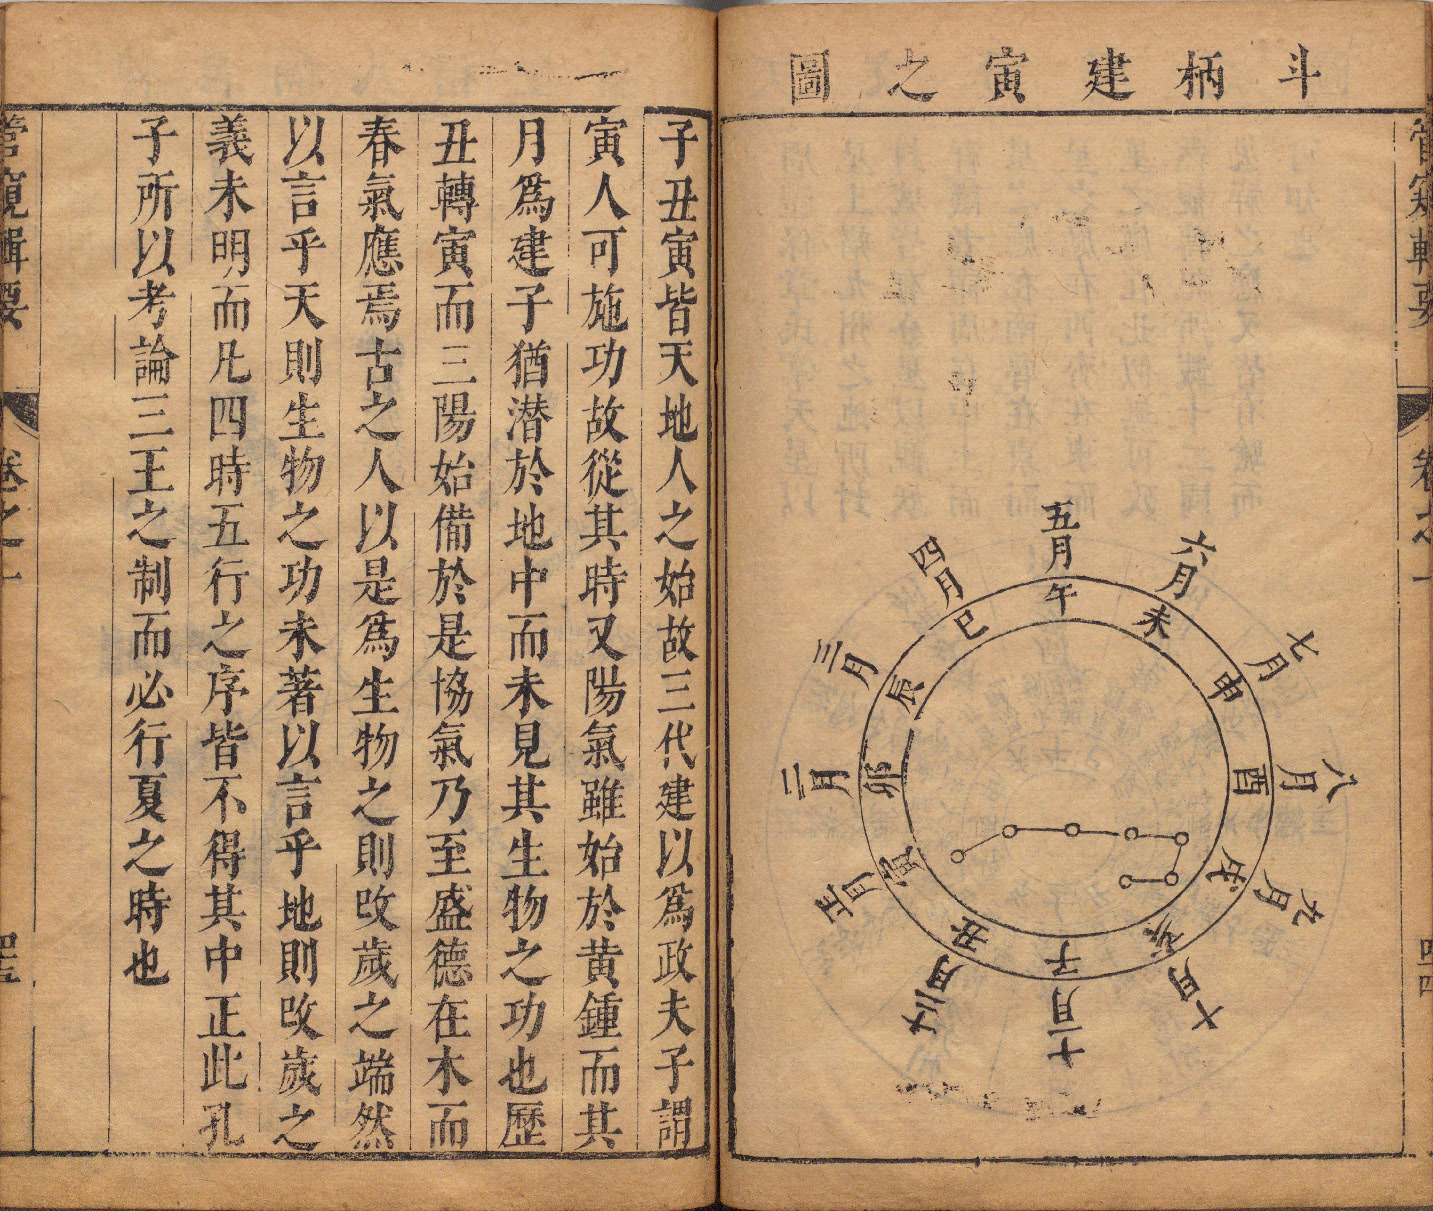 斗柄建寅之圖
五月
午
六月
未
七月
申
八月
酉
九月
戌
十月
亥
十一月
子
十二月
丑
正月
寅
二月
卯
三月
辰
四月
巳
管窺輯要
卷之一
四四
子丑寅皆天地人之始故三代建以爲政夫子謂
寅人可施功故從其時又陽氣雖始於黃鍾而其
月爲建子猶潜於地中而未見其生物之功也歷
丑轉寅而三陽始備於是協氣乃至盛德在木而
春氣應焉古之人以是爲生物之則改歲之端然
以言乎天則生物之功未著以言乎地則改歲之
義未明而凡四時五行之序皆不得其中正此孔
子所以考論三王之制而必行夏之時也
管窺輯要
卷之一
四五